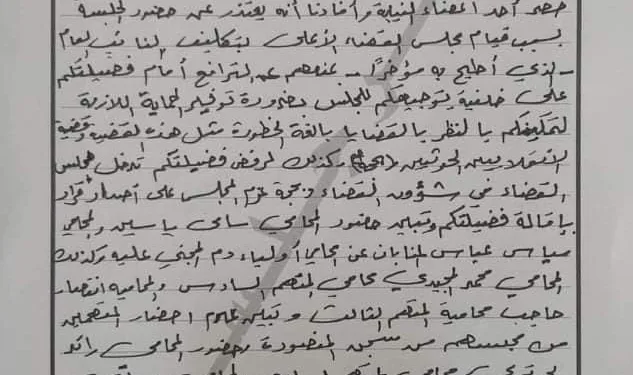 حضر أحد أعضاء النيابة وأفادنا أنه يعتذر عن حضور الجلسة
بسبب قيام مجلس القضاء الأعلى بتكليف النائب العام
- الذي أطيح به مؤخراً - بمنعهم عن الترافع أمام فضيلتكم
على خلفية توجيهكم للمجلس بضرورة توفير الحماية اللازمة
لتمكينكم بالنظر بالقضايا بالغة الخطورة مثل هذه القضية وقضية
الانقلابيين الحوثيين وكذلك لرفض فضيلتكم تدخل مجلس
القضاء في شؤون القضاء وبحجة عزم المجلس على اصدار قرار
بإقالة فضيلتكم وتبين حضور المحامي سامي ياسين والمحامي
عباس المنابان عن المحامي أولياء دم المجني عليه وكذلك
المحامي محمد المجيدي محامي المتهم السادس والمحاميه انتصار
حاجب محامية المتهم الثالث وتبين عدم احضار المتهمين
من محبسهم من سجن المنصورة وحضور المحامي رائد